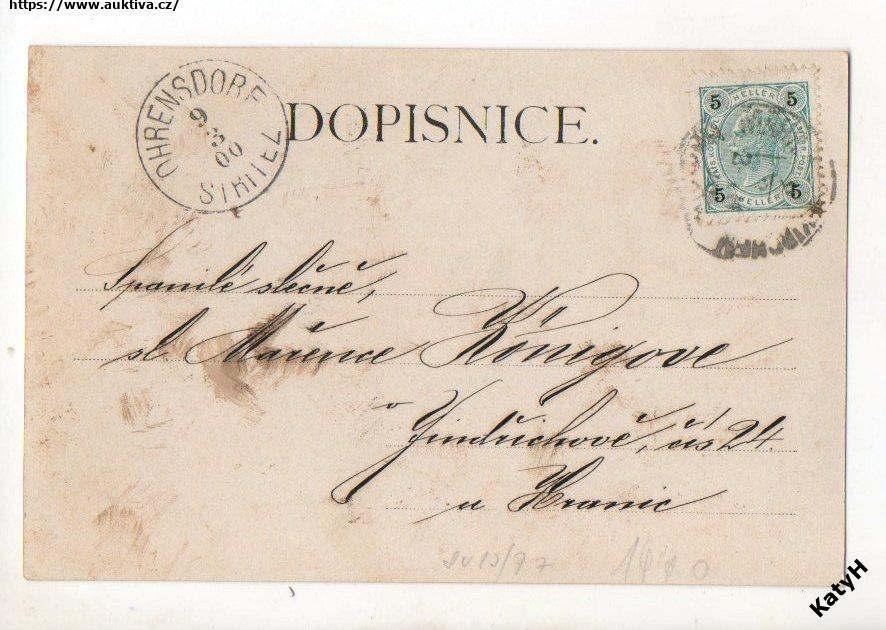 https://www.auktiva.cz/
OHRENSDORF
9 3 00
STŘÍTEŽ
DOPISNICE.
5 HELLER 5
5 HELLER 5
Spanilé slečně,
sl. Mařence Königove
v Jindřichově, čís 24.
u Hranic
KatyH